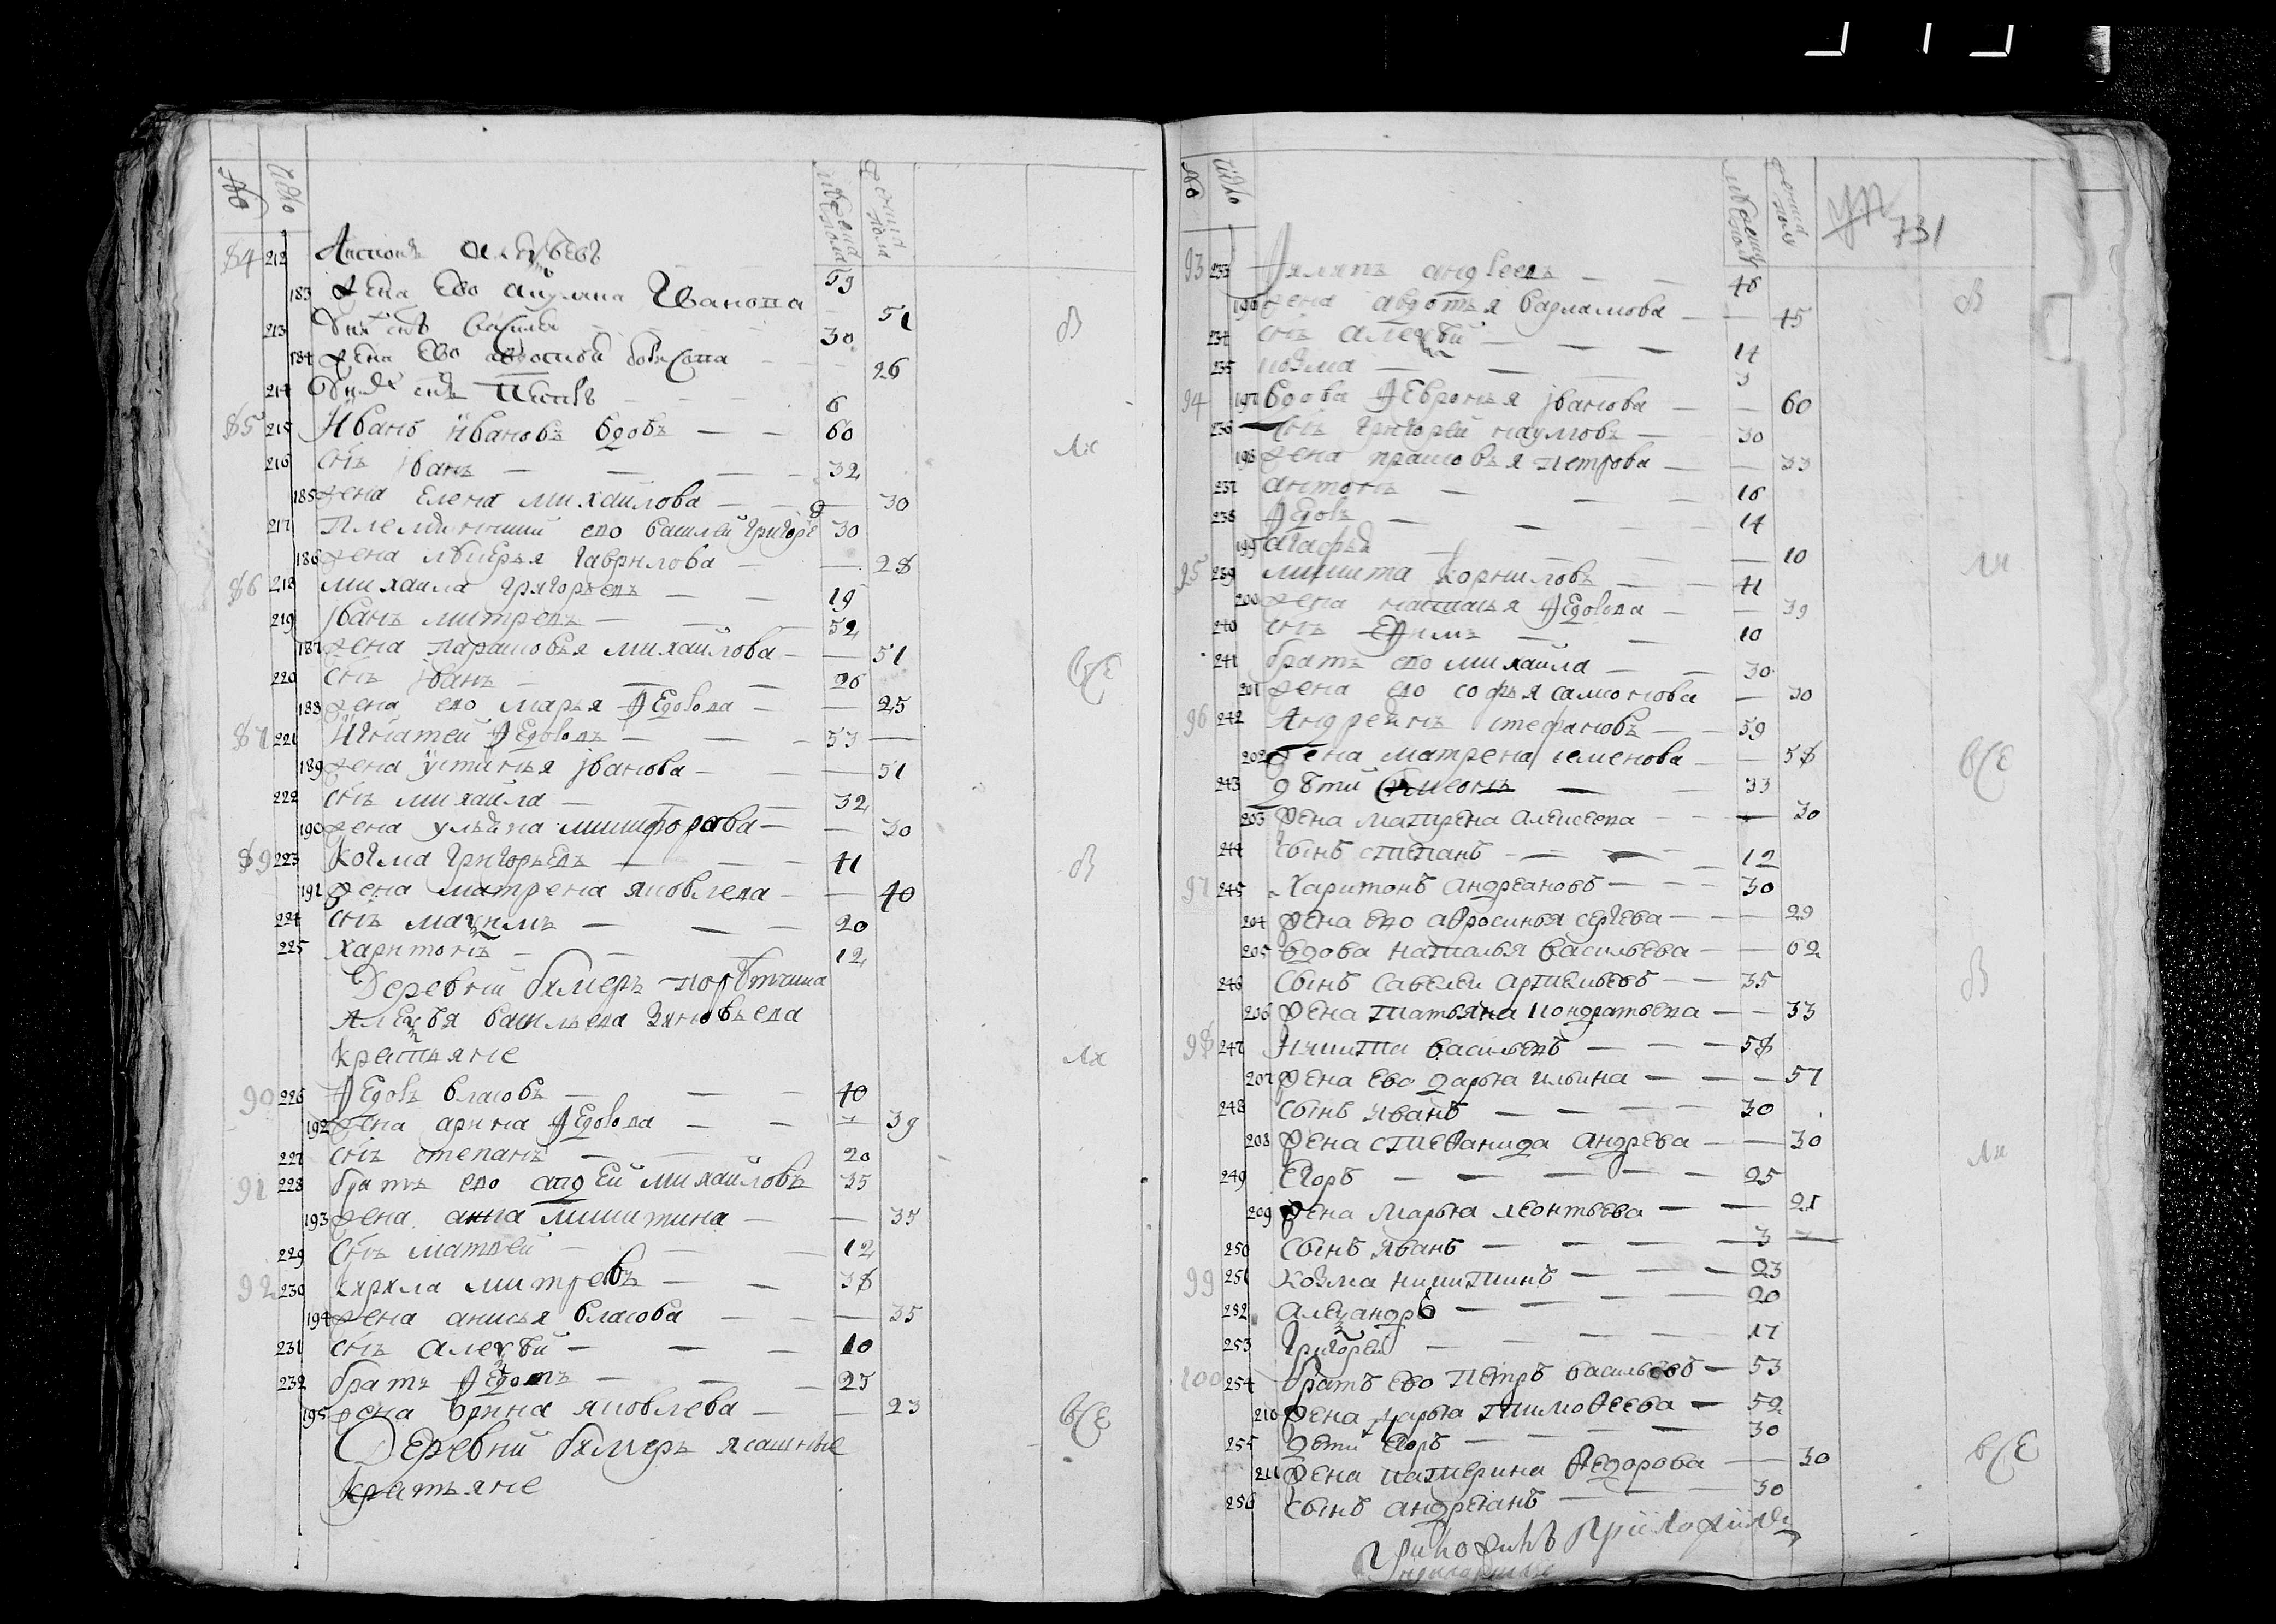 № мужеска пола женска пола
84 212 Антонъ Алеѯѣевъ 59
183 жена ево Иванова 51
213 У них снъ Василей 30
184 жена ево Борисова 26
214 У них снъ 6
85 215 Иванъ Ивановъ вдовъ — — 60
216 снъ Иванъ — — — 32
185 жена Елена Михаилова — — 30
217 Племянникъ ево Василей Григорье 30
186 жена Гаврилова — — 28
86 218 Михаила Григорьевъ — — 19
219 Иванъ Митревъ — — 52
187 жена Парасковья Михаилова — — 51
220 снъ Иванъ — — — 26
188 жена ево Марья Ѳедорова — — 25
87 221 Игнатей Ѳедоровъ — — 53 —
189 жена Устинья Иванова — — 51
222 снъ Михаила — — — 32
190 жена Ульяна Никифорова — — 30
89 223 Козма Григорьевъ — — — 41
191 жена Матрена Яковлева — — 40
224 снъ Маѯимъ — — — 20
225 Харитонъ — — — 12
Деревни Бимеръ
Алеѯѣя Васильева Зиновьева
крестьяне
90 226 Ѳедоръ Власовъ — — — 40
192 жена Арина Ѳедорова — — — 39
227 снъ Степанъ — — 20
91 228 братъ ево Андрей Михаиловъ 35
193 жена Анна Никитина — — 35
229 снъ Матвей — — — 12
92 230 Кирила Митревъ — — 38
194 жена Анисья Власова — — — 35
231 снъ Алеѯѣй — — — 10
232 братъ Ѳедотъ — — — 25
195 жена Орина Яковлева — — 23
Деревни Бимеръ ясашные
крестьяне
№ мужеска полу женска полу 731
93 233 Филипъ Андреевъ — — 46
196 жена Авдотья Варламова — — 45
234 снъ Алеѯѣй — — — 14
235 Козма — — — 3
94 197 вдова Ѳевронья Иванова — — 60
236 снъ Григорей Наумовъ — — 30
198 жена Прасковья Петрова — — 33
237 Антонъ — — — 16
238 Ѳедоръ — — — 14
199 Агафья — — — 10
95 239 Никита Корниловъ — — 41
200 жена Наталья Ѳедорова — — 39
240 снъ Еѳимъ — — 10
241 братъ ево Михаила — — 30
201 жена ево Софья Самсонова — 30
96 242 Андреянъ Стефановъ — — 59
202 жена Матрена Семенова — — 58
243 дѣти Симеонъ — — 33
203 жена Матрена Алексеева — — — 30
244 сынъ Степанъ — — — 12
97 245 Харитонъ Андреяновъ — — — 30
204 жена ево Аѳросинья Сергева — — — 29
205 вдова Наталья Васильева — — 62
246 сынъ Савелей Артемьевъ — — 35
206 жена Татьяна Кондратьева — — 33
98 247 Никита Васильевъ — — — 58
207 жена ево Дарья Ильина — — — 57
248 сынъ Иванъ — — — — 30
208 жена Стеѳанида Андрева — — 30
249 Егоръ — — — — — 25
209 жена Марья Леонтьева — — 21
250 сынъ Иванъ — — — — 3 —
99 251 Козма Никитинъ — — — 23
252 Алеѯандръ — — — — 20
253 Григорей — — — — 17
100 254 братъ ево Петръ Васильевъ — 53
210 жена Марья Тимоѳеева — 52
255 дѣти Егоръ — — — — 30
211 жена Катерина Ѳедорова — — 30
256 сынъ Андреянъ — — — 30